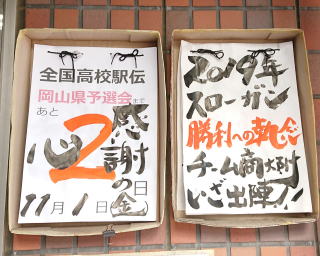 全国高校駅伝
岡山県予選会まで
あと
2日
感謝の心
11月1日(金)
2019年
スローガン
勝利への執念
チーム商大付
いざ出陣!!